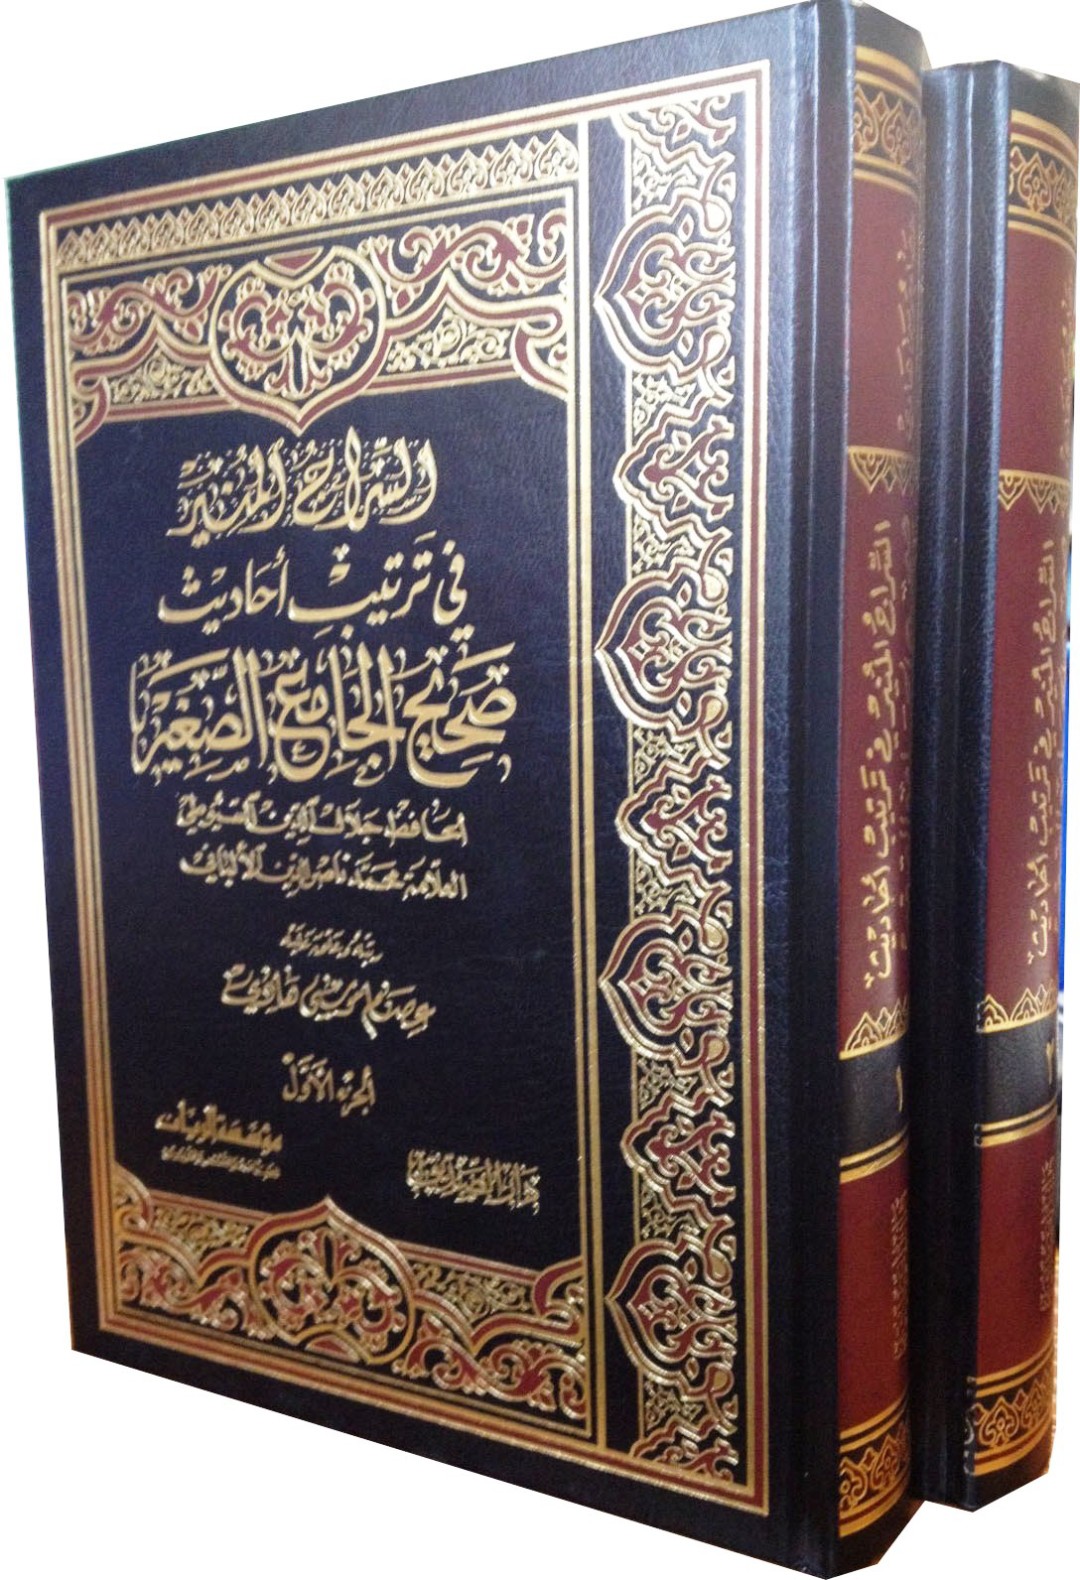 السِّرَاجُ المُنِيْر
في تَرتيبِ أحَاديث
صَحِيْح الجَامِعِ الصَّغِيْر
الحافظ جلال الدين السيوطي
العلامة محمد ناصر الدين الألباني
رتبه وعلق عليه
عصام موسى هادي
الجزء الأول
مؤسسة الريان
دار الصديق
السِّرَاجُ المُنِيْر في تَرتيبِ أحَاديث
١
السِّرَاجُ المُنِيْر في تَرتيبِ أحَاديث
٢